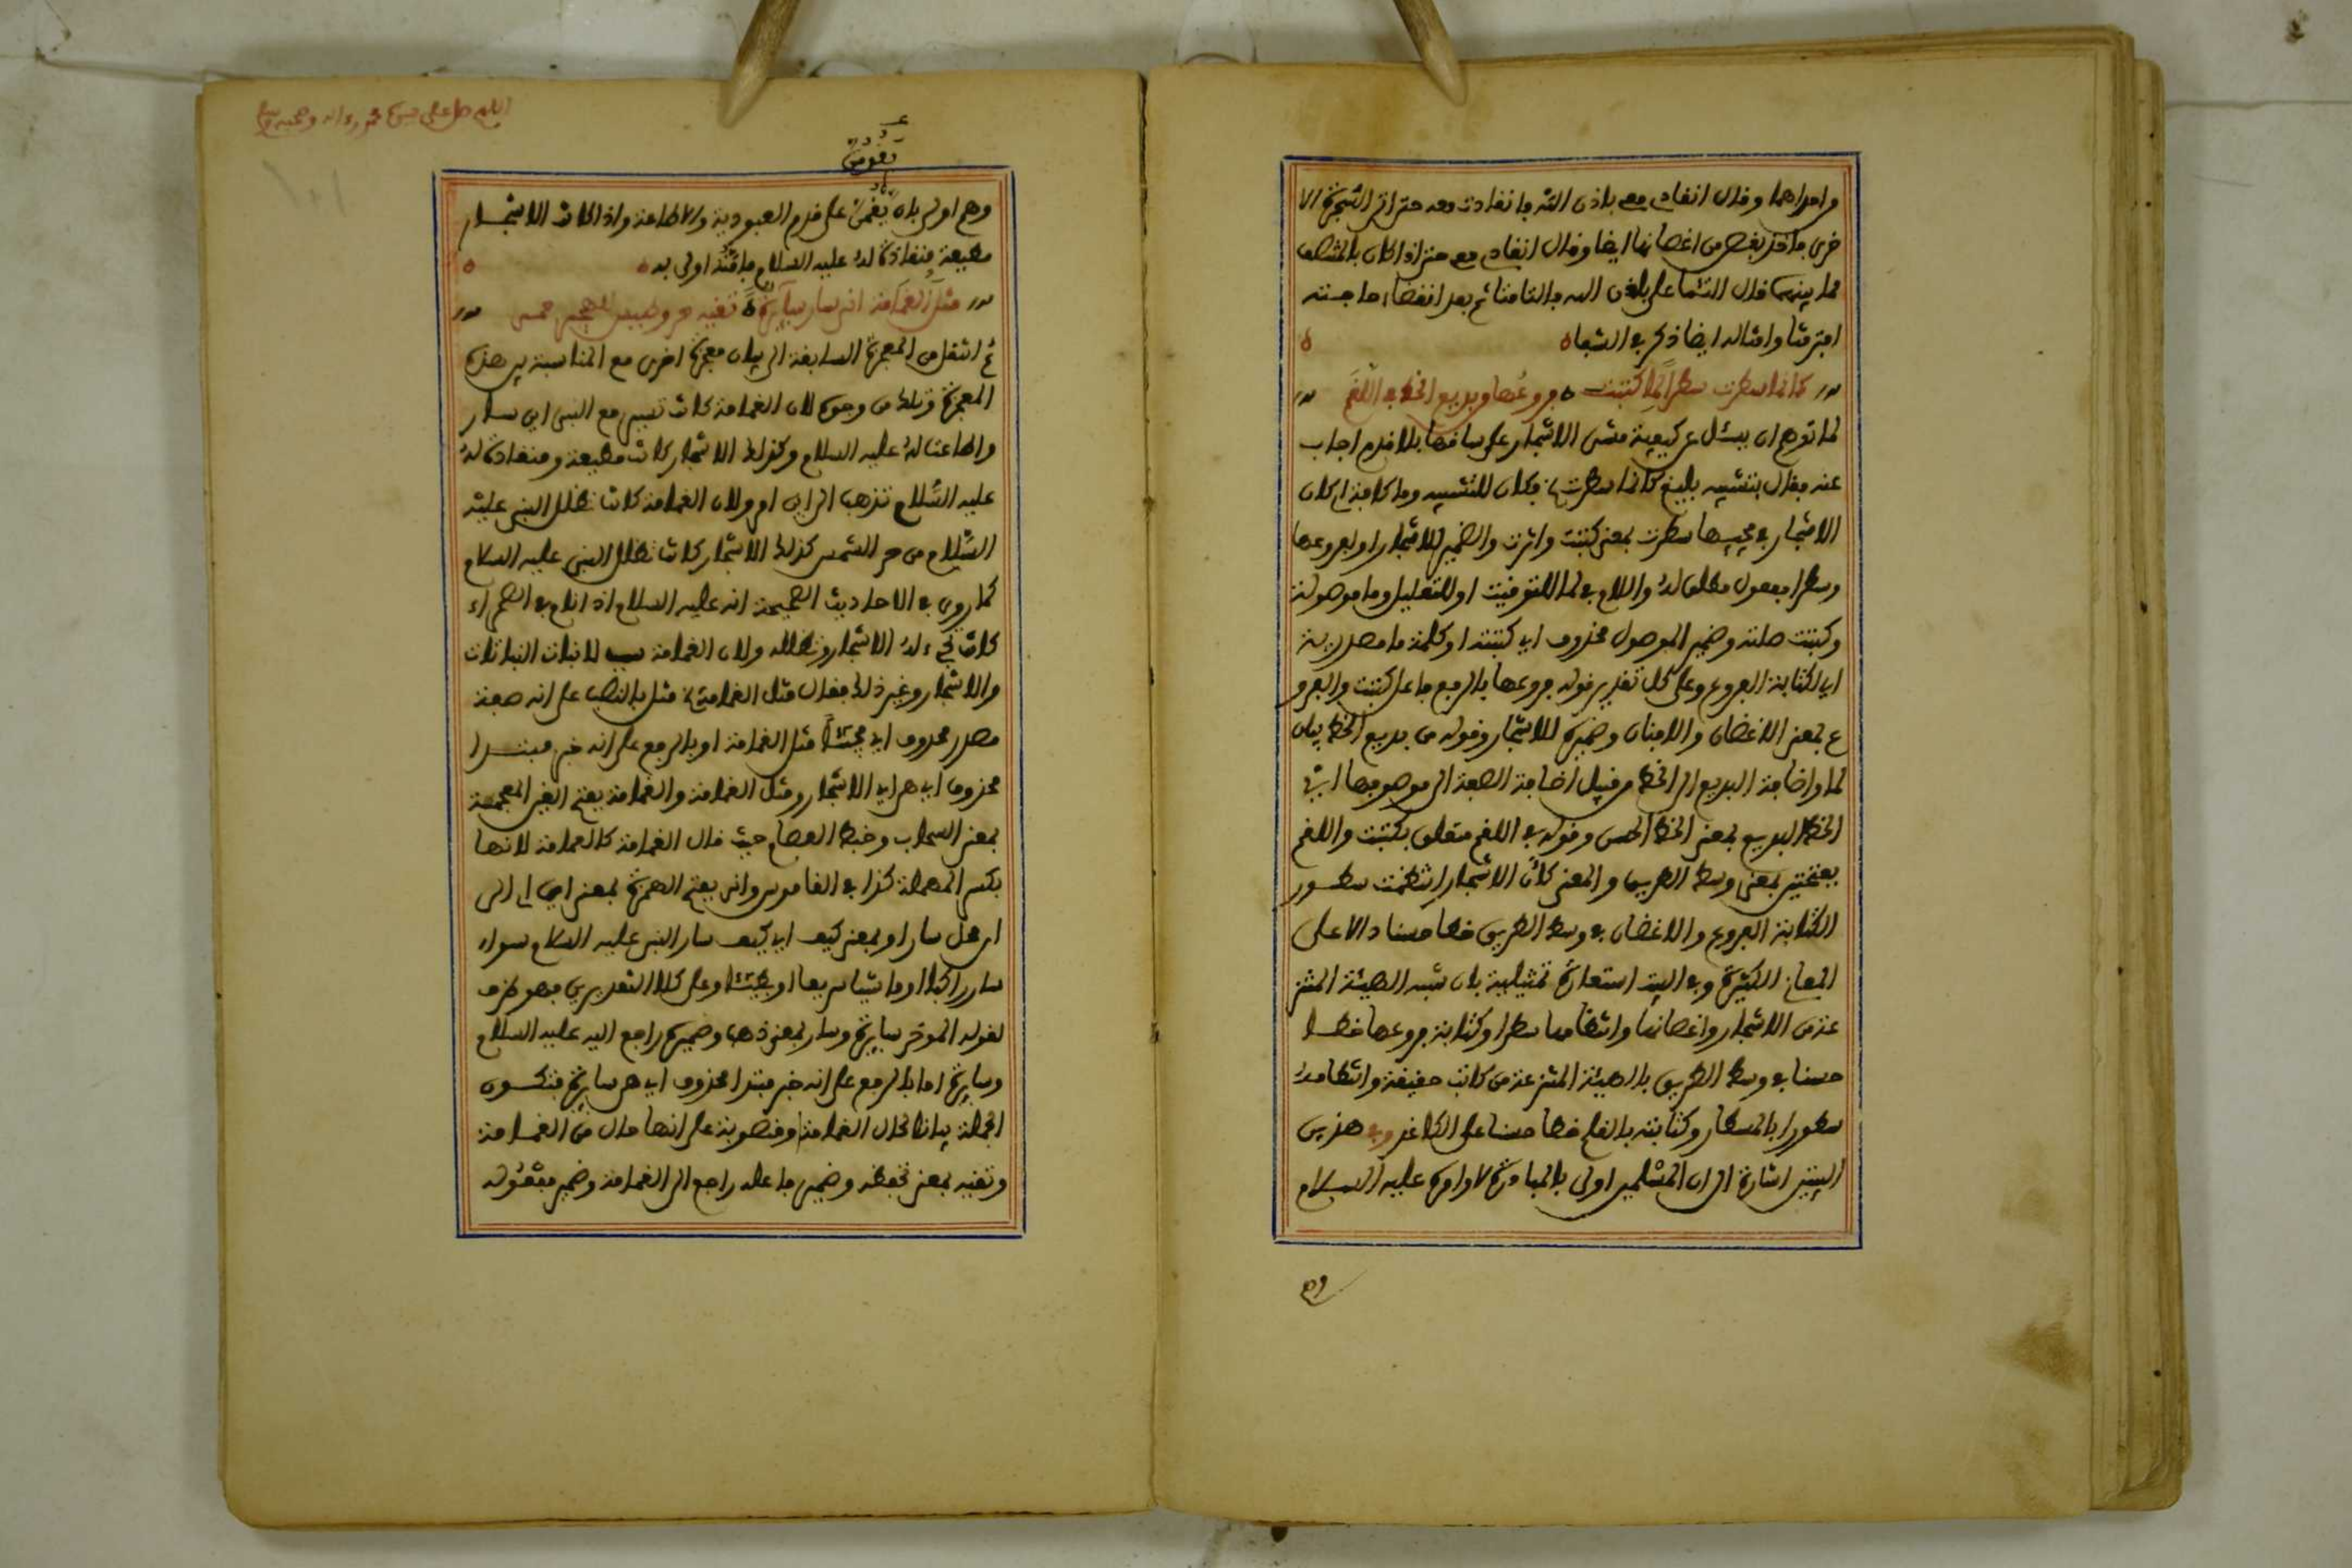 وامراهما وقال انقادي معي باذن الله فانقادت معه حتى اتى الشجرة الا
خرى فاخذ بغصن من اغصانها ايضا وقال انقادي معي حتى اذا كان بالمنصف
مما بينهما قال التئما علي باذن الله فالتامتا ثم بعد انقضاء حاجته
افترقتا وامثاله ايضا ذكر في الشفا
كانما سطرت سطرا لما كتبت فروعها من بديع الخط في اللقم
لما توهم ان يسئل عن كيفية مشي الاشجار على ساقها بلا قدم اجاب
عنه فقال بتشبيه بليغ كانما سطرت فكان للتشبيه وما كافة اي كان
الاشجار في مجيبها سطرت بمعنى كتبت واثرت والضمير للاشجار او لفروعها
وسطرا مفعول مطلق له واللام في لما للتوقيت او للتعليل وما موصولة
وكتبت صلته وضمير الموصول محذوف اي كتبته او كلمة ما مصدرية
اي لكتابة الفروع وعلى كل تقدير قوله فروعها بالرفع فاعل كتبت والفرو
ع بمعنى الاغصان والافنان وضميره للاشجار وقوله من بديع الخط بيان
لما واضافة البديع الى الخط من قبيل اضافة الصفة الى موصوفها اي
الخط البديع بمعنى الخط الحسن وقوله في اللقم متعلق بكتبت واللقم
بفتحتين بمعنى وسط الطريق والمعنى كأن الاشجار انتظمت سطور
الكتابة الفروع والاغصان في وسط الطريق خطا حسنا دالا على
المعاني الكثيرة وفي البيت استعارة تمثيلية بان شبه الهيئة المنتز
عة من الاشجار واغصانها وانتظامها سطرا وكتابة فروعها خطا
حسنا في وسط الطريق بالهيئة المنتزعة من كاتب حقيقة وانتظامه
سطورا بالمسطار وكتابته بالقلم خطا حسنا على الكاغد وفي هذين
البيتين اشارة الى ان المسلمين اولى بالمبادرة لاوامره عليه السلام
وهم
اللهم صل على سيدنا محمد واله وصحبه وسلم
يقومن
وهم اولى بان يقمن على قدم العبودية والاطاعة واذا كانت الاشجار
مطيعة منقادة له عليه السلام فامته اولى به
مثل الغمامة انى سار سائرة تقيه حر وطيس للهجير حمي
ثم انتقل من المعجزة السابقة الى بيان معجزة اخرى مع المناسبة بين هذه
المعجزة وتلك من وجوه لان الغمامة كانت تسير مع النبي اين سار
واطاعتها له عليه السلام وكذلك الاشجار كانت مطيعة ومنقادة له
عليه السلام تذهب الى اين امر ولان الغمامة كانت تظلل النبي عليه
السلام من حر الشمس كذلك الاشجار كانت تظلل النبي عليه السلام
كما روي في الاحاديث الصحيحة انه عليه السلام اذا نام في الصحراء
كانت تجيء له الاشجار وتظلله ولان الغمامة سبب لانبات النباتات
والاشجار وغير ذلك فقال مثل الغمامة مثل بالنصب على انه صفة
مصدر محذوف اي مجيئا مثل الغمامة او بالرفع على انه خبر مبتدا
محذوف اي هي اي الاشجار ومثل الغمامة والغمامة بفتح الغين المعجمة
بمعنى السحاب وخبط العصام حيث قال الغمامة كالعمامة لانها
بكسر المهملة كذا في القاموس وانى بفتح الهمزة بمعنى اين اي الى
اي محل سار او بمعنى كيف اي كيف سار النبي عليه السلام سواء
سار راكبا او ماشيا سريعا او بطيئا وعلى كلا التقديرين فهو ظرف
لقوله المؤخر سايرة وسار بمعنى ذهب وضميره راجع اليه عليه السلام
وسايرة اما بالرفع على انه خبر مبتدا محذوف اي هي سايرة فتكون
الجملة بيانا لحال الغمامة او منصوبة على انها حال من الغمامة
وتقيه بمعنى تحفظه وضمير فاعله راجع الى الغمامة وضمير مفعوله